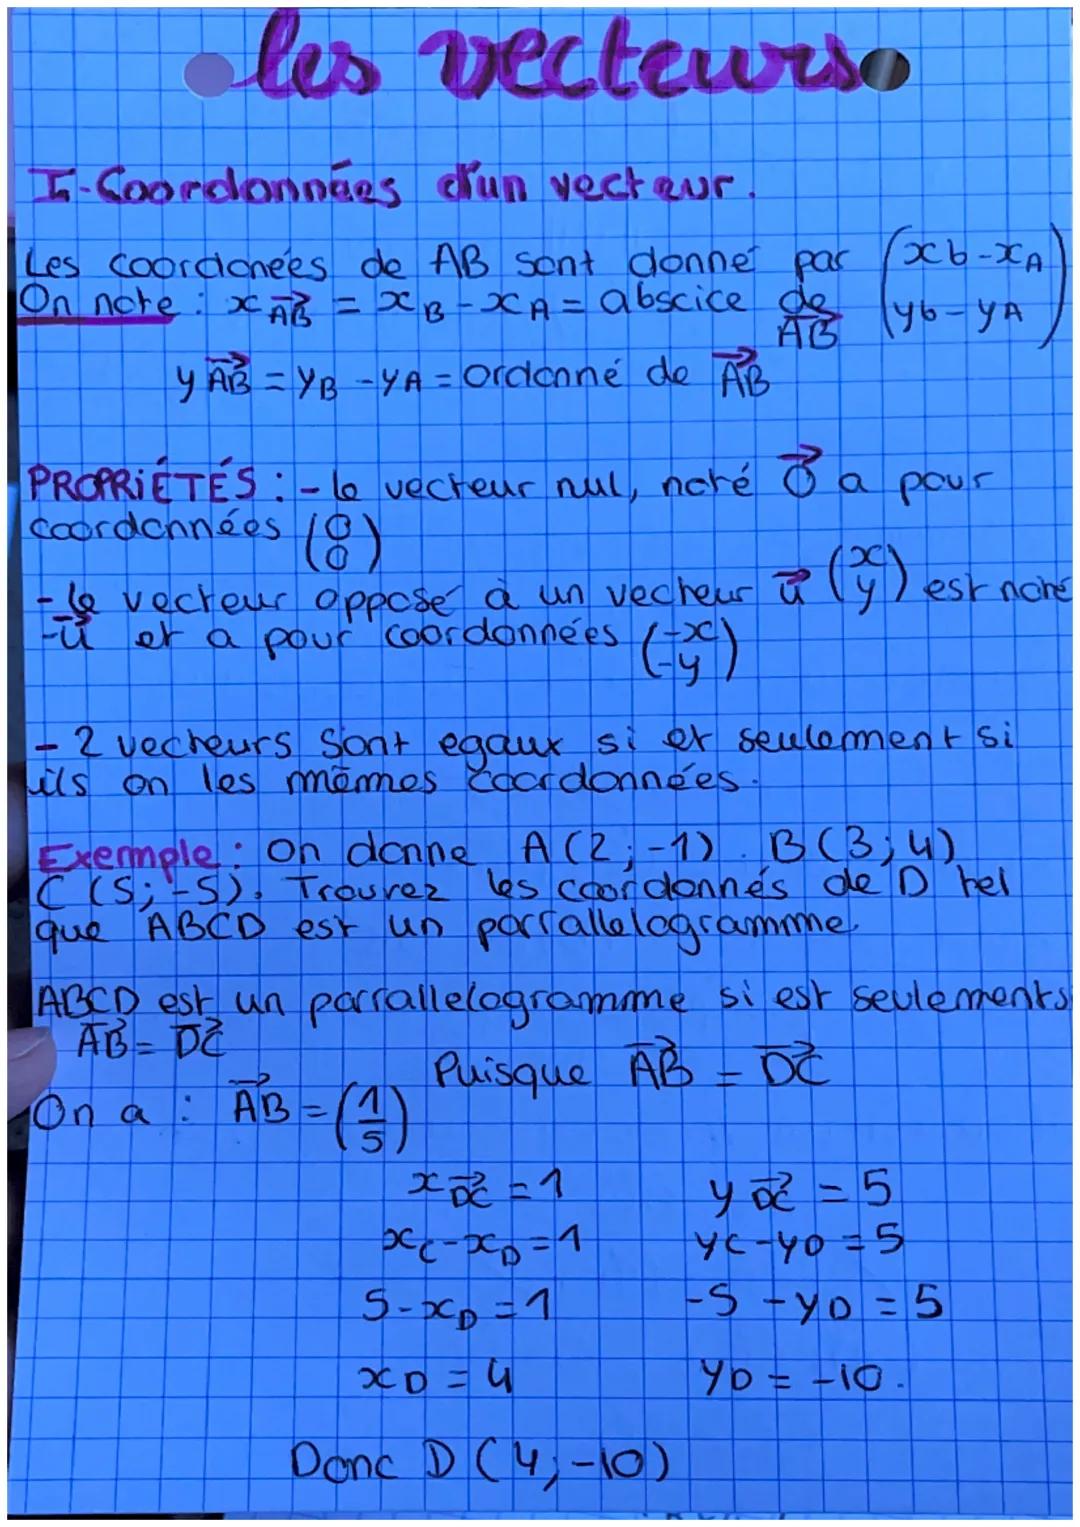 les vecteurs
I-Coordonnées d'un vecteur.
Les coordonées de AB sont donné par (xb-xA
On note : x AB→ = xB - xA = abscice de AB→ yb-yA)
y AB→ = yB - yA = Ordonné de AB→
PROPRIÉTÉS : - le vecteur nul, noté 0→ a pour
coordonnées (0 0)
- le vecteur opposé à un vecteur u→ (x y) est noté
-u→ et a pour coordonnées (-x -y)
- 2 vecteurs sont egaux si et seulement si
ils on les mêmes coordonnées.
Exemple : On donne A(2;-1). B(3;4)
C (5;-5). Trouvez les coordonnés de D tel
que ABCD est un parrallelogramme
ABCD est un parrallelogramme si est seulements
AB→ = DC→
Puisque AB→ = DC→
On a : AB→ = (1/5)
x DC→ = 1 y DC→ = 5
xC-xD = 1 yC-yD = 5
5-xD = 1 -5 -yD = 5
xD = 4 yD = -10.
Donc D (4;-10)